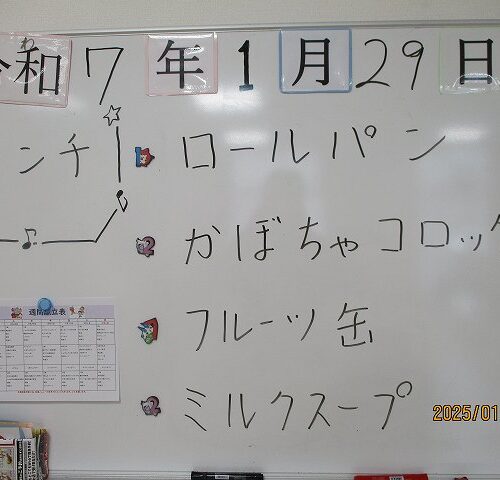 令和7年1月29日
ンチ
ロールパン
かぼちゃコロッケ
フルーツ缶
ミルクスープ
週間献立表
2025/01